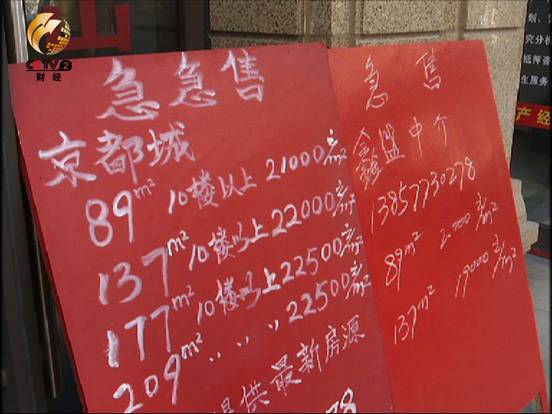 CCTV2
财经
急急售
京都城
89m² 10楼以上 21000元/m²
137m² 10楼以上 22000元/m²
177m² 10楼以上 22500元/m²
209m² 〃 〃 〃 22500元/m²
提供最新房源
78
急售
鑫盟中介
13857730278
89m² 20000元/m²
137m² 19000元/m²
究分析
抵押咨
生服务
产经